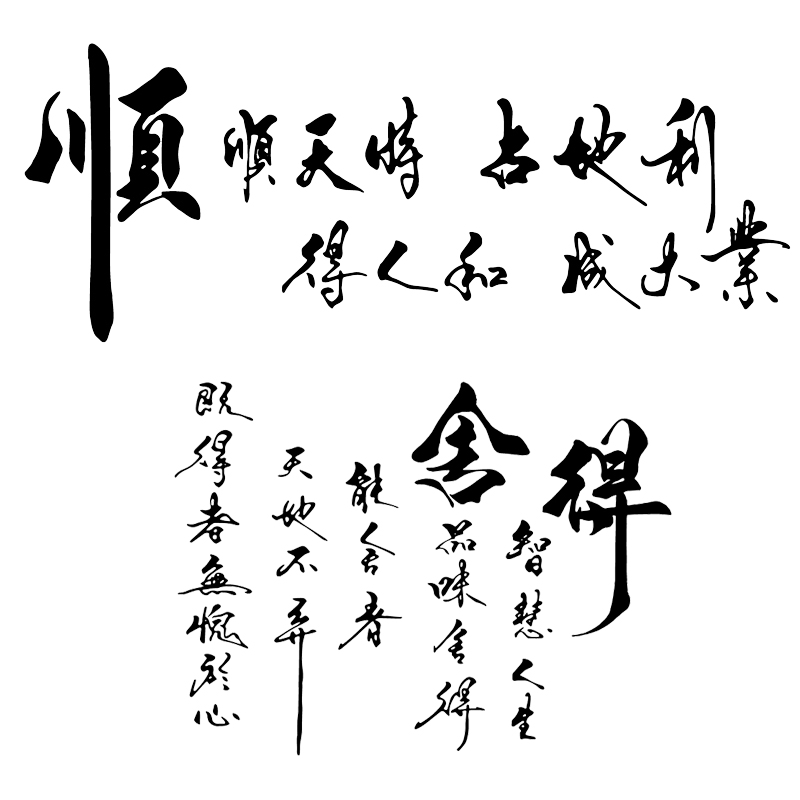 順
順天時 占地利
得人和 成大業
舍得
智慧人生
品味舍得
能舍者
天地不弃
既得者無愧於心